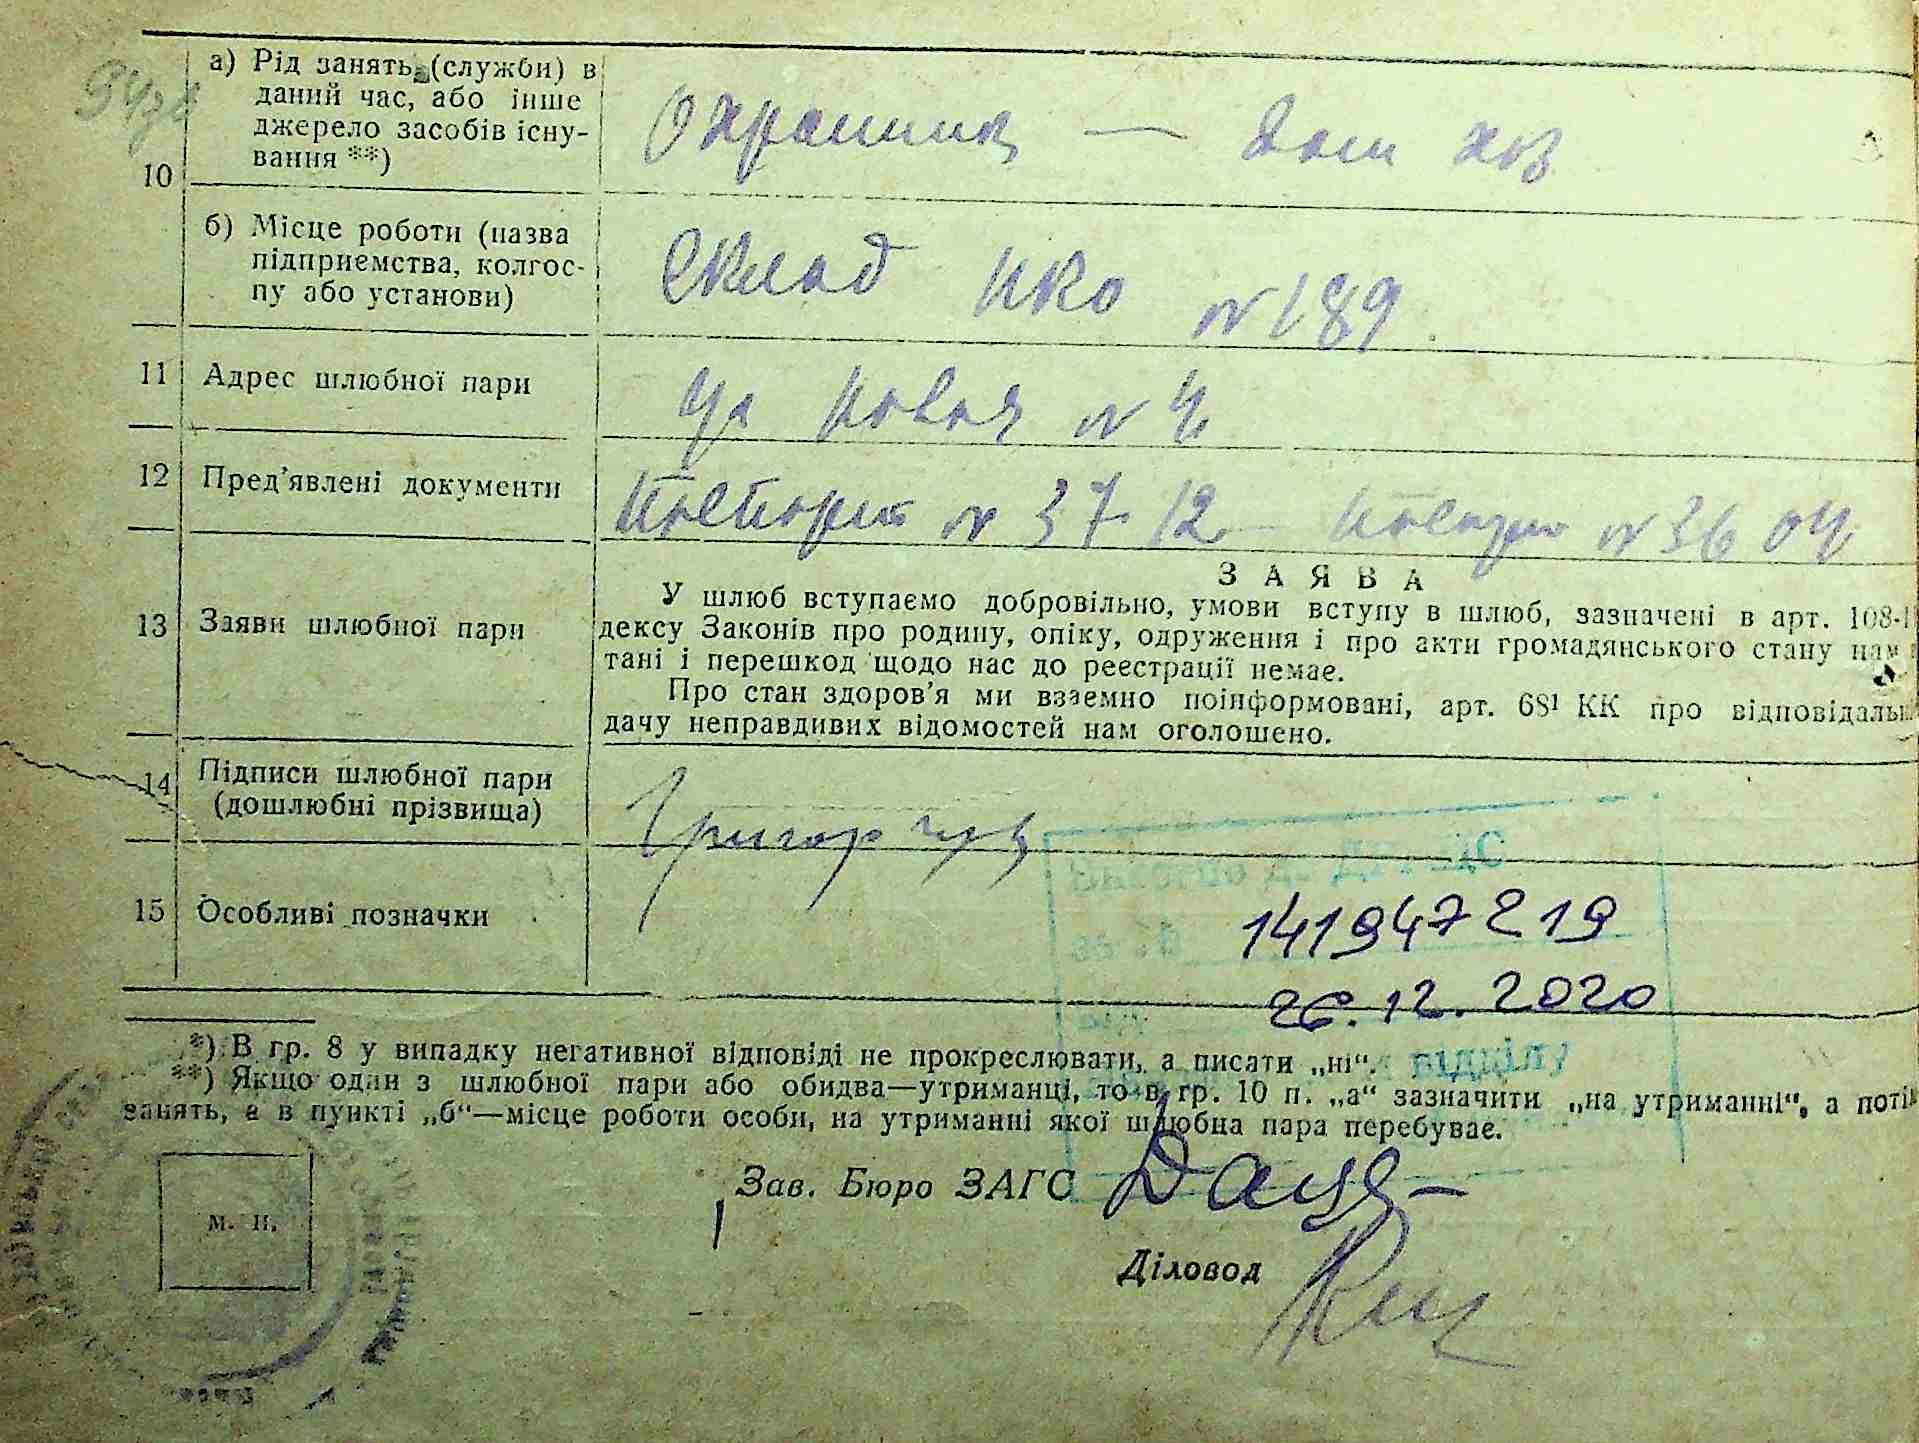 а) Рід занять (служби) в
даний час, або інше
джерело засобів існу-
вання **)
10
Охранник — Дом хоз
б) Місце роботи (назва
підприємства, колгос-
пу або установи)
Склад НКО № 189
11 Адрес шлюбної пари
ул Новая № 4
12 Пред'явлені документи
Паспорт № 37-12 № 36 04
13 Заяви шлюбної пари
ЗАЯВА
У шлюб вступаємо добровільно, умови вступу в шлюб, зазначені в арт. 108-
дексу Законів про родину, опіку, одруження і про акти громадянського стану нам
тані і перешкод щодо нас до реєстрації немає.
Про стан здоров'я ми взаємно поінформовані, арт. 68¹ КК про відповідальн
дачу неправдивих відомостей нам оголошено.
14 Підписи шлюбної пари
(дошлюбні прізвища)
Григорчук
15 Особливі позначки
141947219
26.12.2020
*) В гр. 8 у випадку негативної відповіді не прокреслювати, а писати „ні“.
**) Якщо один з шлюбної пари або обидва—утриманці, то в гр. 10 п. „а“ зазначити „на утриманні“, а поті
занять, а в пункті „б“—місце роботи особи, на утриманні якої шлюбна пара перебуває.
Зав. Бюро ЗАГС
М. П.
Діловод